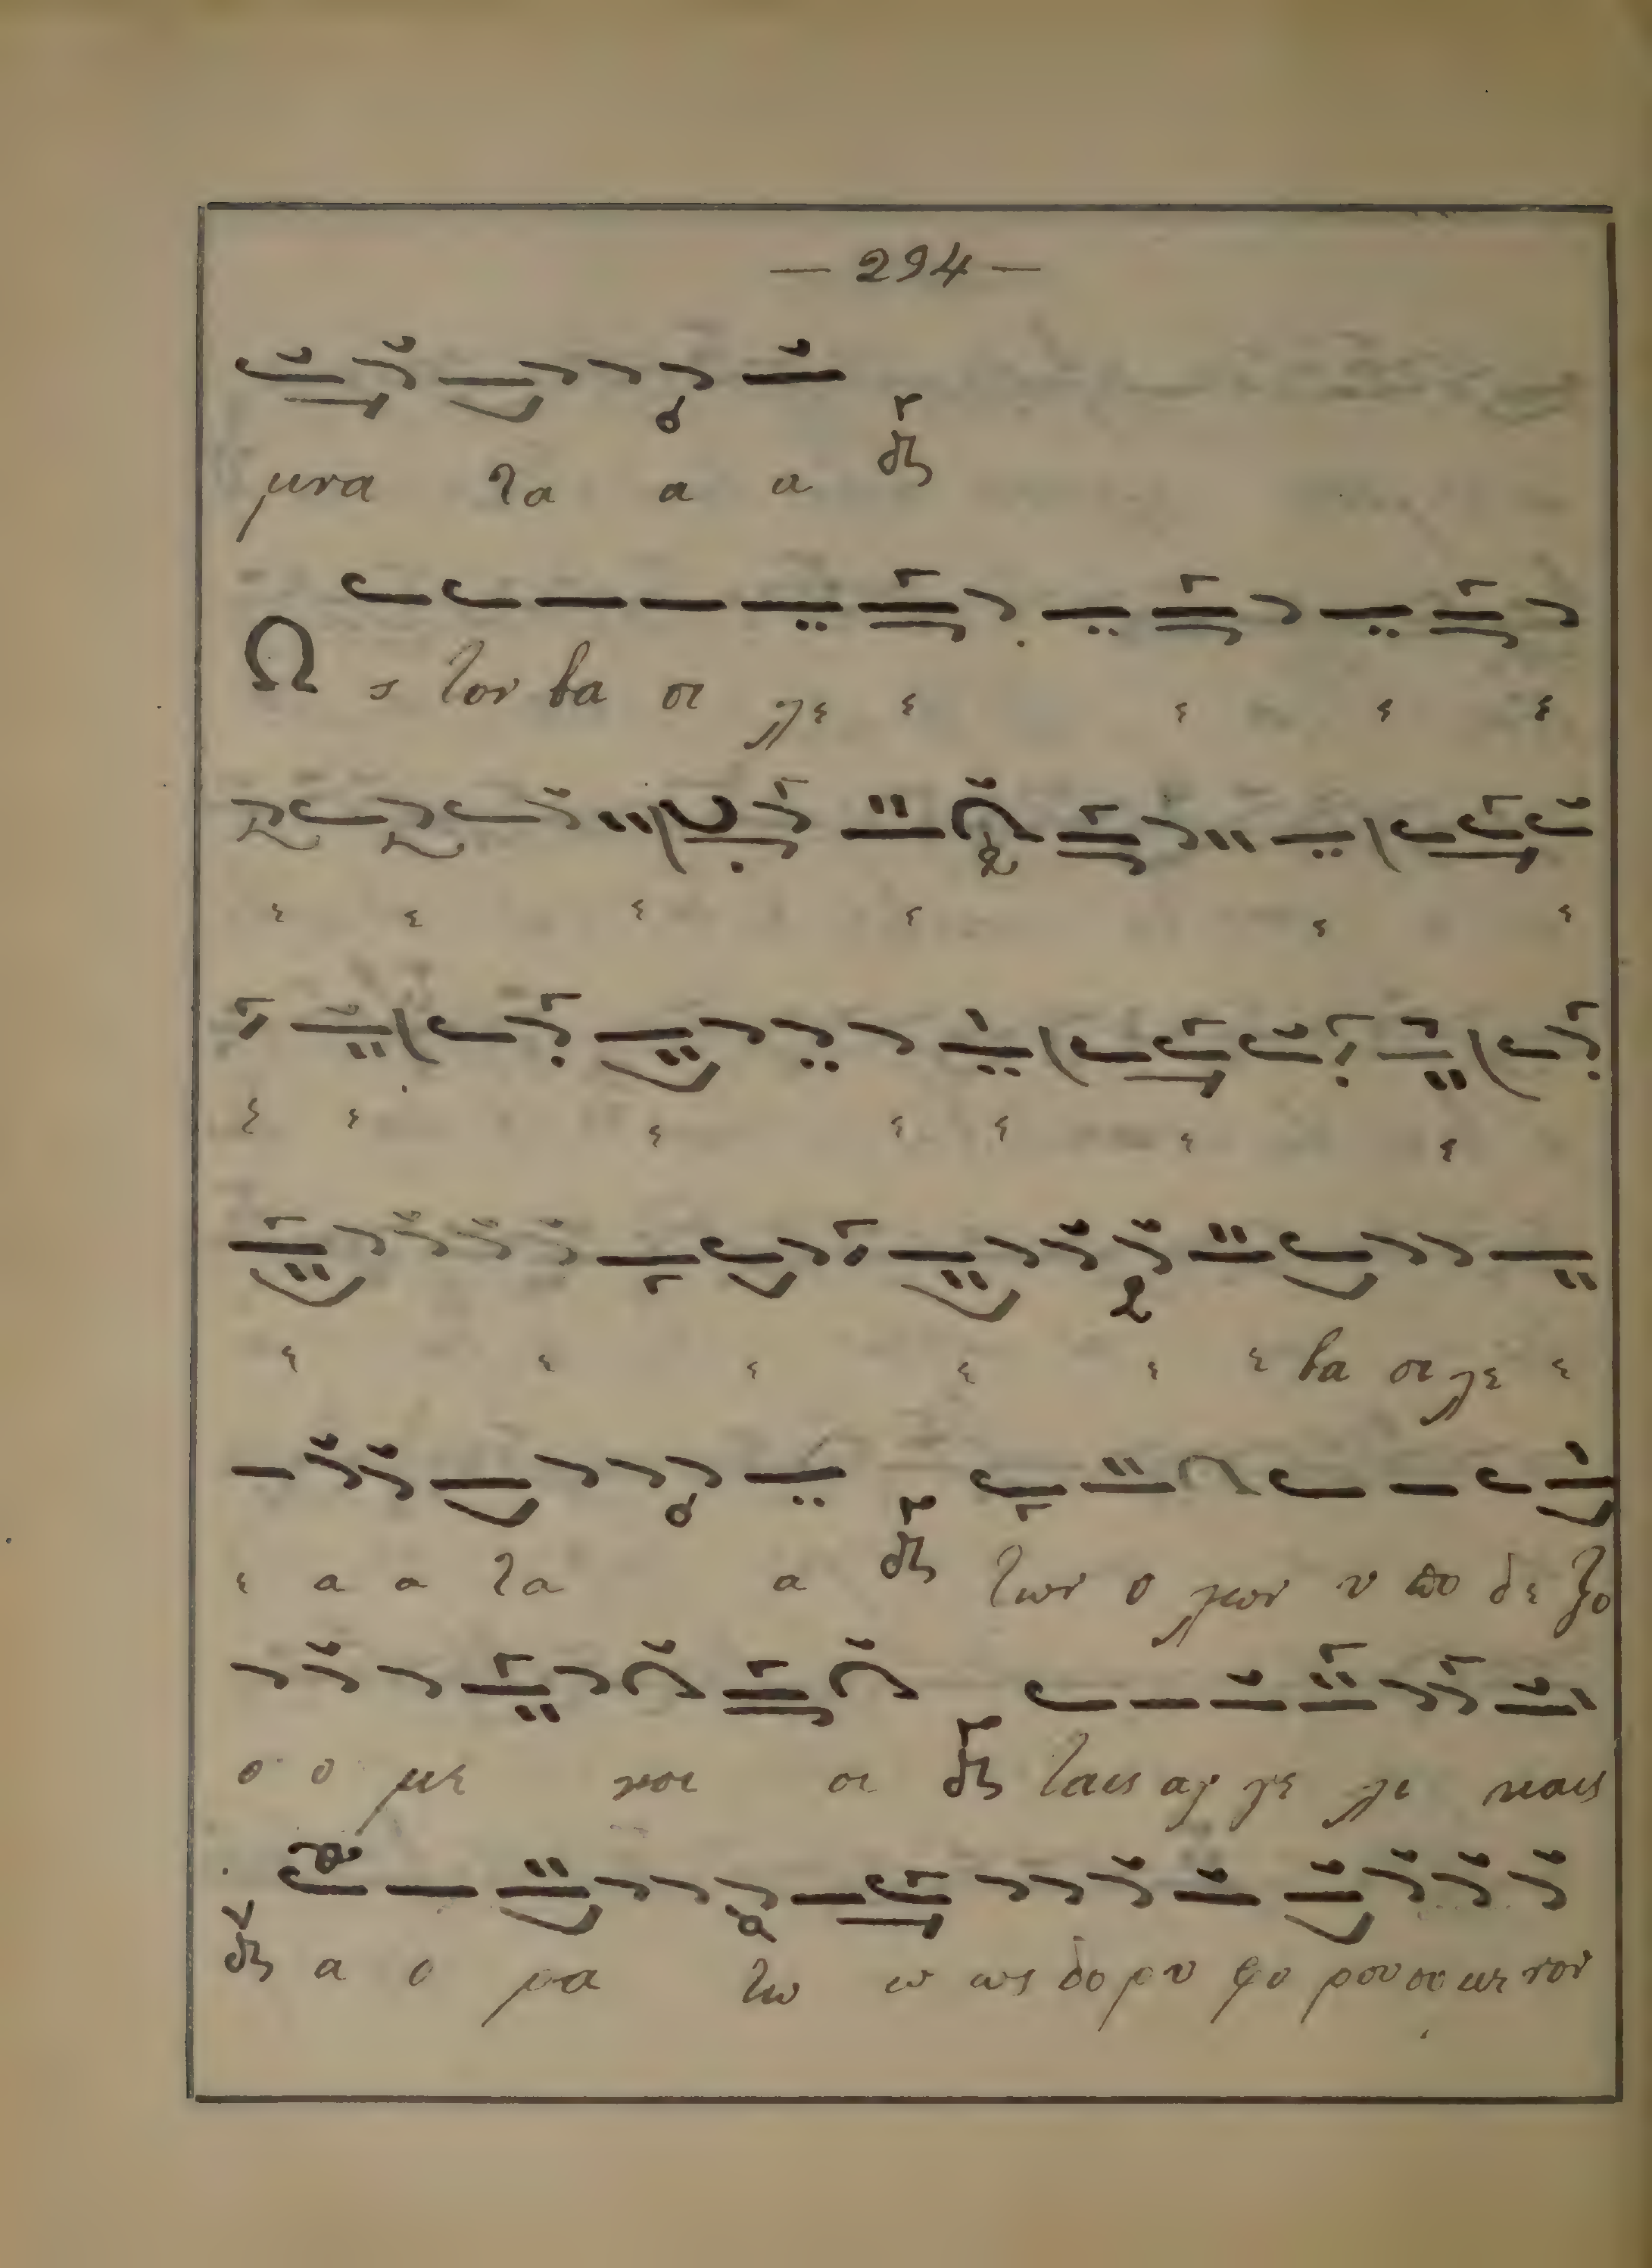 — 294 —
μνα τα α α δι
Ω ς τον βα σι λε ε ε ε ε
ε ε ε ε ε ε
ε ε ε ε ε ε ε
ε ε ε ε ε ε βα σι λε ε
ε α α τα α δι των ο λων υ πο δε ξο
ο ο με νοι οι δι ταις αγ γε λι καις
δι α ο ρα τω ω ως δο ρυ φο ρου ου με νον